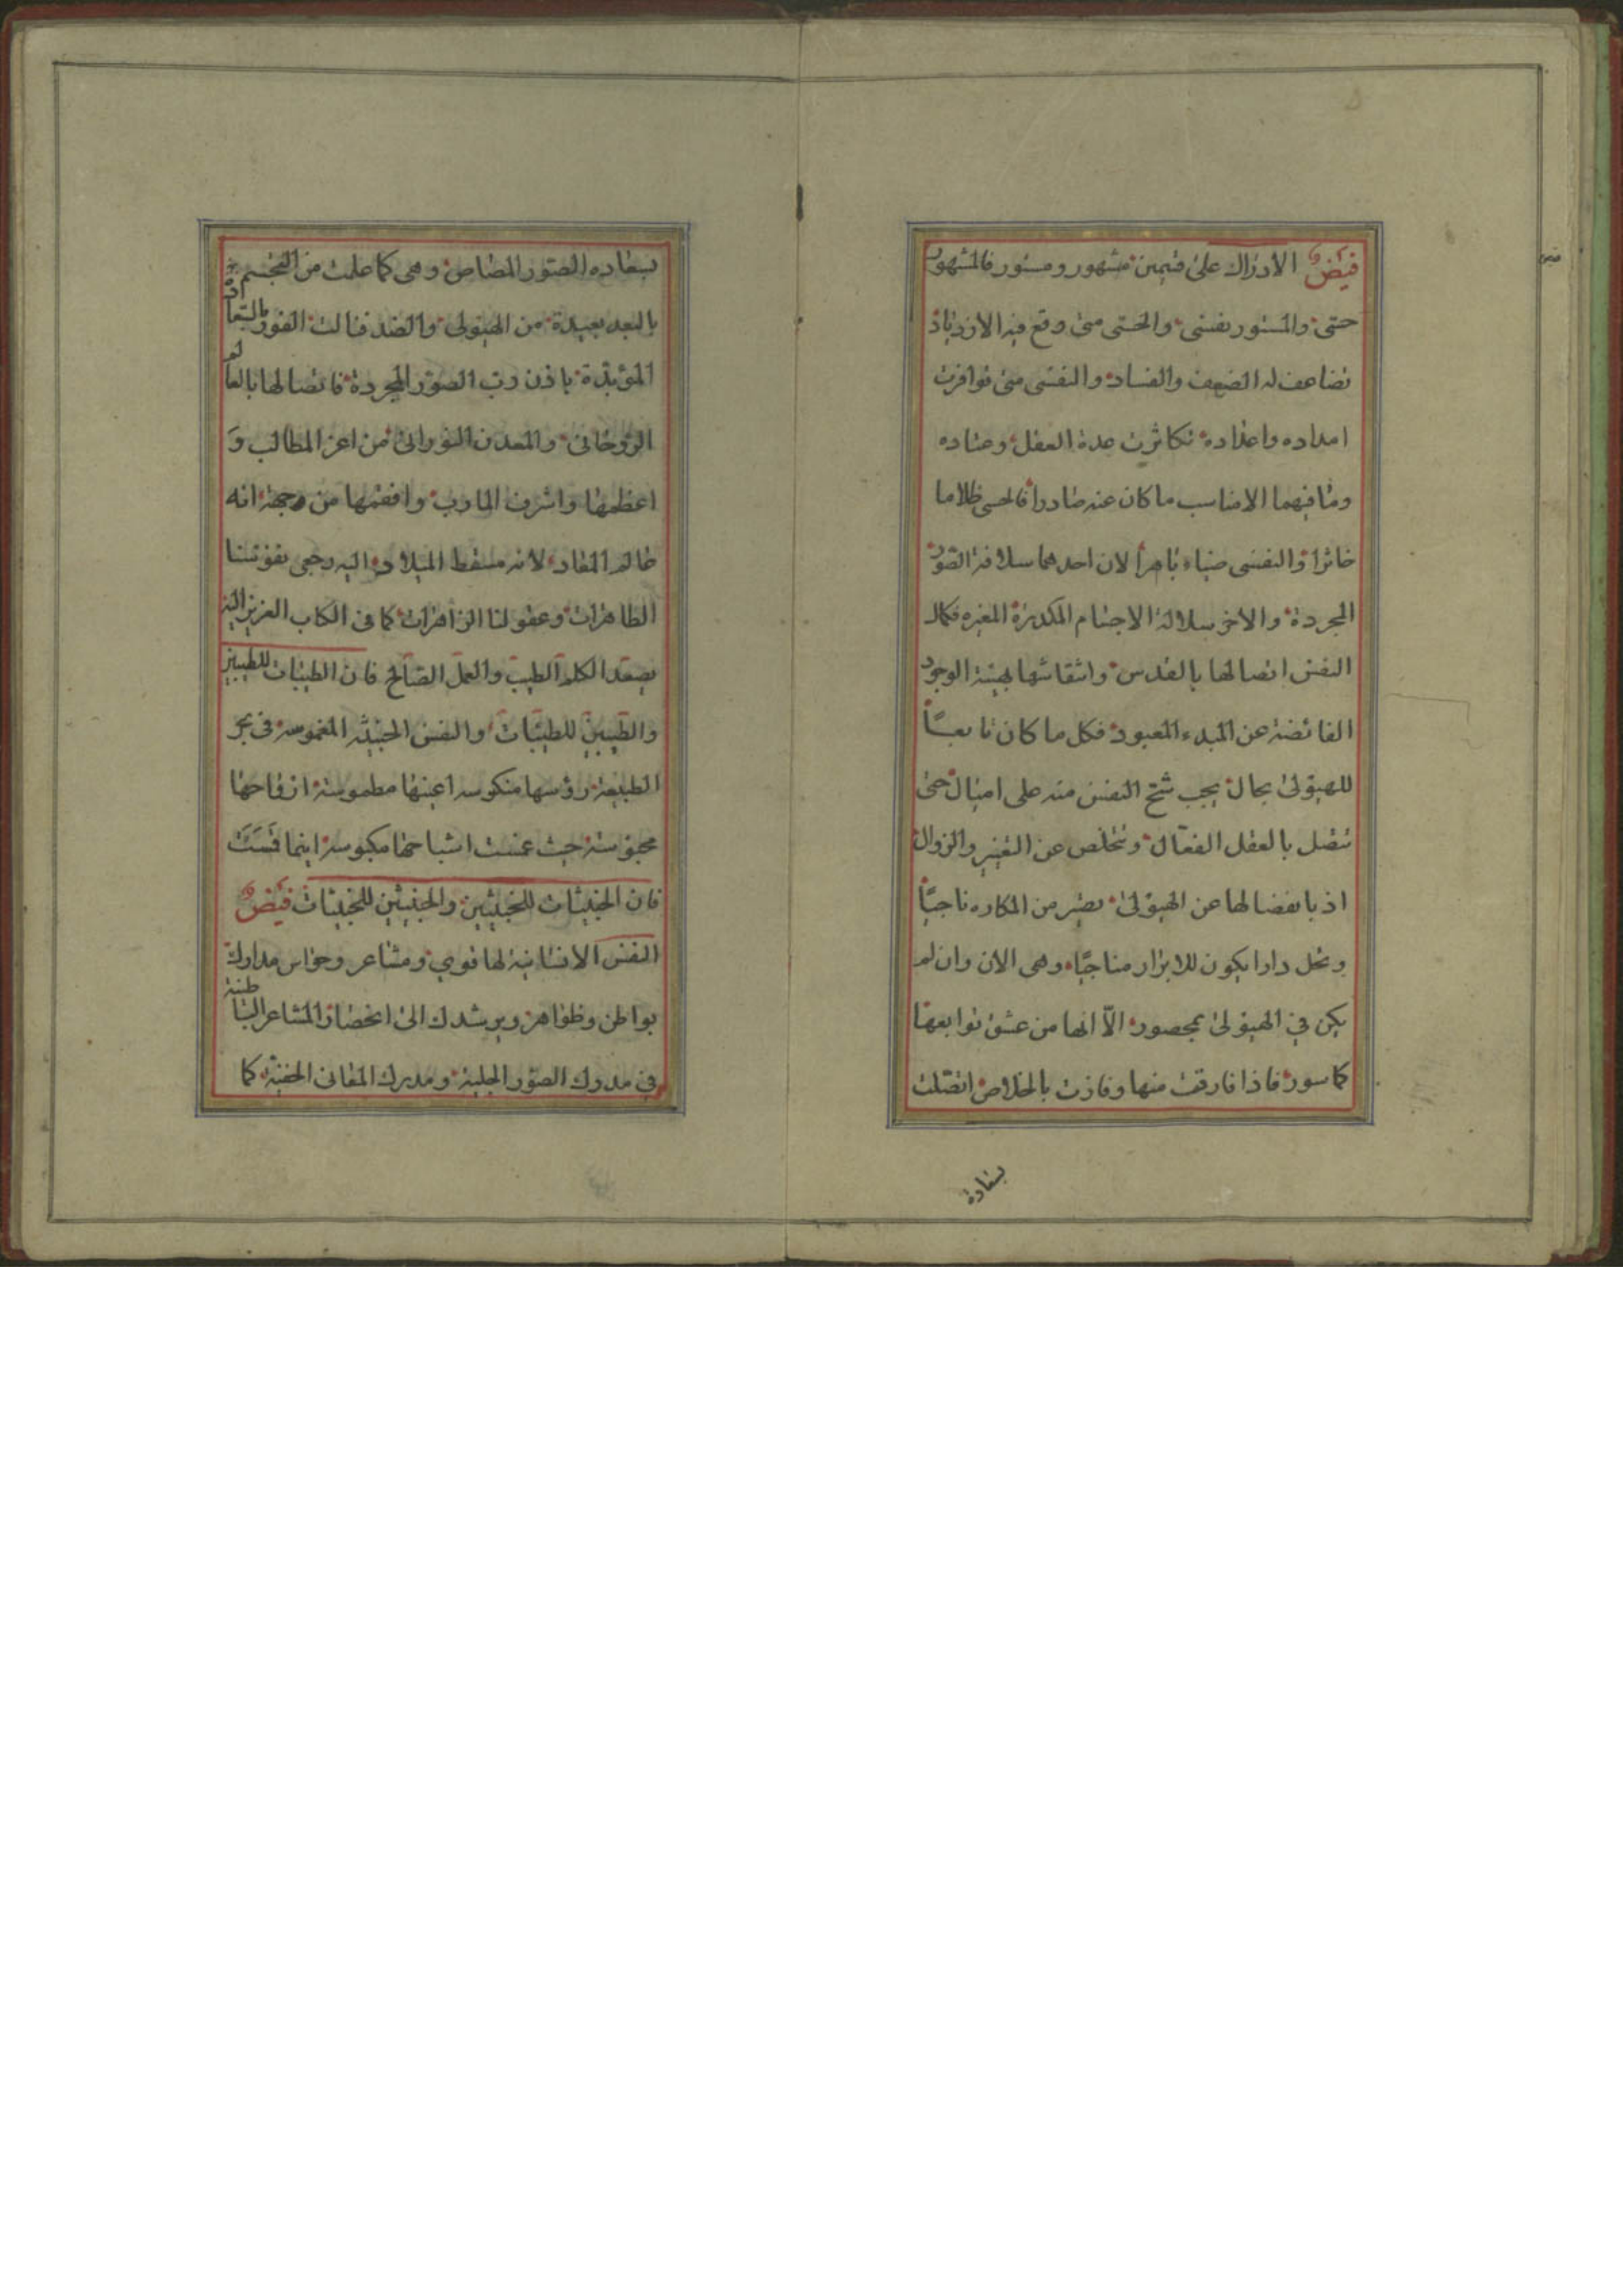 فيض الادراك على قسمين مشهور ومستور فالمشهور
حسى والمستور نفسى والحسى متى وقع فيه الازدياد
تضاعف له الضعف والفساد والنفسى متى توافرت
امداده واعداده تكاثرت عدة العقل وعتاده
وما فيهما الا مناسب ما كان عنه صادرا فالحسى ظلاما
خاثرا والنفسى ضياء باهرا لان احدهما سلافة الصور
المجردة والاخر سلالة الاجسام المكدرة المغبره فكمال
النفس اتصالها بالقدس وانتقاشها بهيئة الوجود
الفائضة عن المبدء المعبود فكل ما كان تابعاً
للهيولى بحال يجب شح النفس منه على امثال حتى
تتصل بالعقل الفعّال وتتخلص عن التغير والزوال
اذ بانفصالها عن الهيولى تصير من المكاره ناجيّاً
وتحل دارا يكون للابرار مناجيّا وهى الان وان لم
يكن في الهيولى بمحصور الّا انها من عشق توابعها
كماسور فاذا فارقت منها وفازت بالخلاص اتصّلت
بسعادة
بسعاده الصور المضاص وهى كما علمت من التجسم
بالبعد بعيدة من الهيولى والضد فنالت الفوز بالسعادة
المؤبدة باذن رب الصور المجردة فاتصالها بالعالم
الروحانى والمعدن النورانى من اعز المطالب و
اعظمها واشرف المارب وافخمها من وجهة انه
عالم المعاد لانه مسقط الميلاد اليه رجعى نفوسنا
الطاهرات وعقولنا الزاهرات كما فى الكتاب العزيز اليه
يصعد الكلم الطيب والعمل الصالح فان الطيبات للطيبين
والطيبين للطيبات والنفس الخبيثه المغموسه فى بحر
الطبيعة رؤسها منكوسه اعينها مطموسة ارواحها
محبوسة حيث عنت اشباحها مكبوسة اينما قست
فان الخبيثات للخبيثين والخبيثين للخبيثات فيض
النفس الانسانية لها قوى ومشاعر وحواس مدارك
بواطن وظواهر ويرشدك الى انحصار المشاعر الباطنة
فى مدرك الصور الجلية ومدرك المعانى الخفية كما